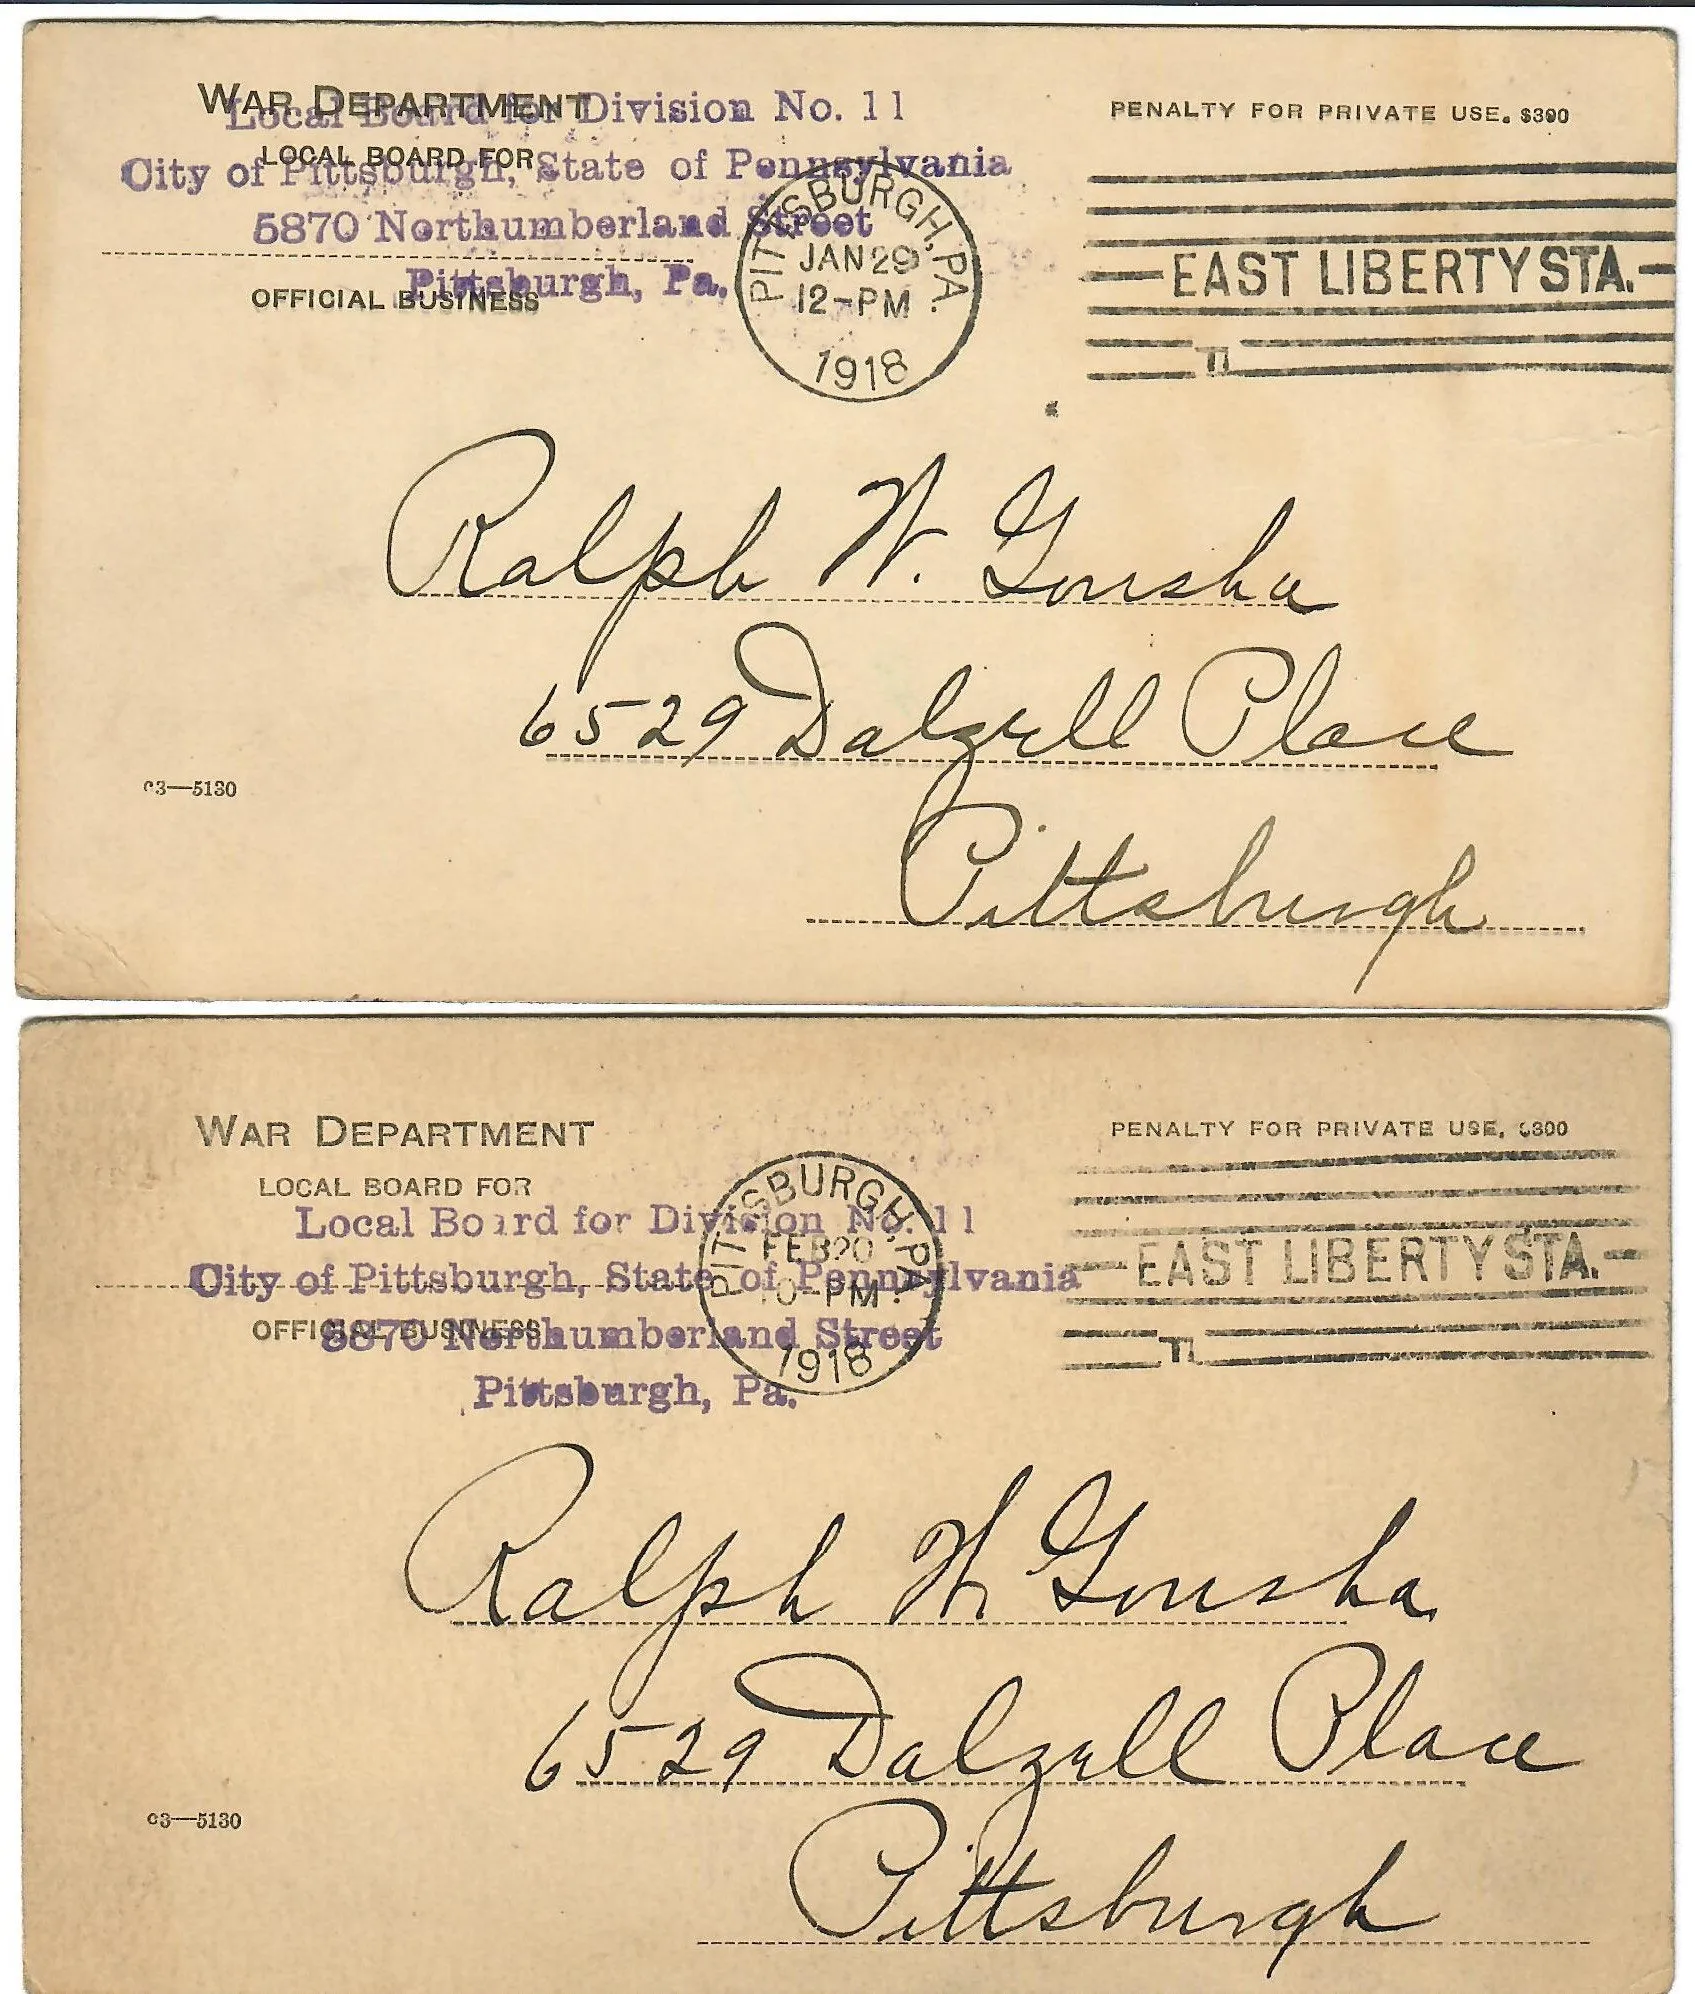 WAR DEPARTMENT
Local Board for Division No. 11
PENALTY FOR PRIVATE USE, $300
LOCAL BOARD FOR
City of Pittsburgh, State of Pennsylvania
5870 Northumberland Street
Pittsburgh, Pa.
OFFICIAL BUSINESS
PITTSBURGH, PA.
JAN 29
12-PM
1918
EAST LIBERTY STA.
Ralph W. Gousha
6529 Dalzell Place
Pittsburgh
03—5130
WAR DEPARTMENT
PENALTY FOR PRIVATE USE, $300
LOCAL BOARD FOR
Local Board for Division No. 11
City of Pittsburgh, State of Pennsylvania
OFFICIAL BUSINESS
5870 Northumberland Street
Pittsburgh, Pa.
PITTSBURGH, PA.
FEB 20
PM
1918
EAST LIBERTY STA.
Ralph W Gousha
6529 Dalzell Place
03—5130
Pittsburgh